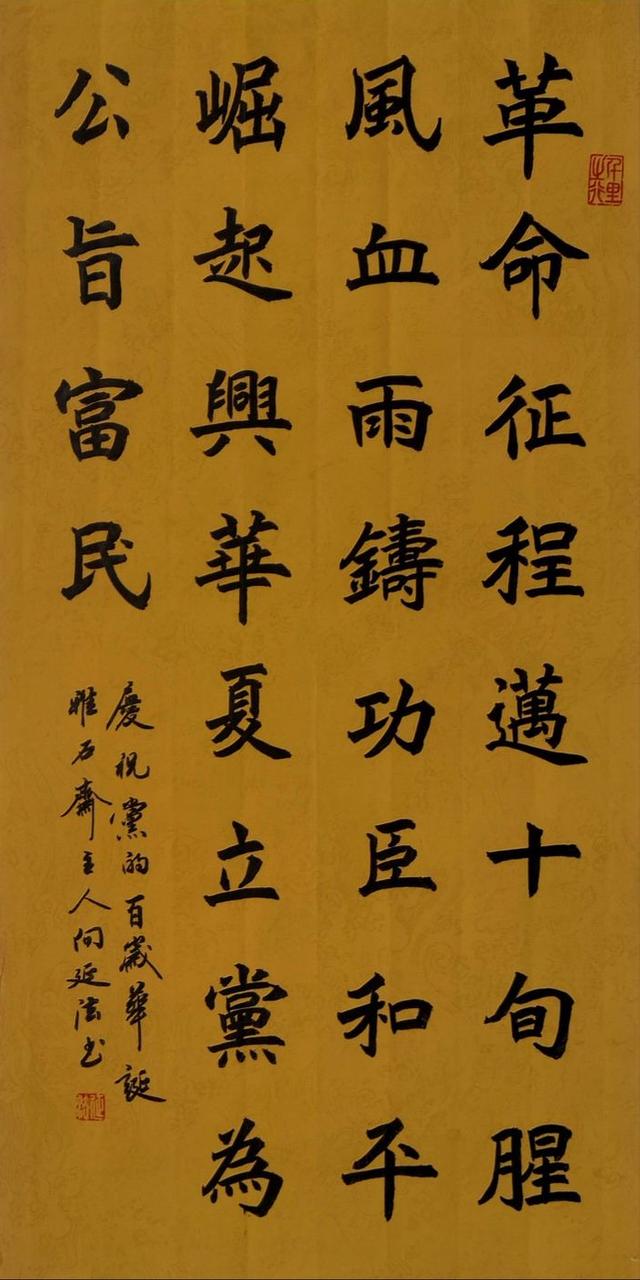 革命征程邁十旬腥
風血雨鑄功臣和平
崛起興華夏立黨為
公旨富民
慶祝黨的百歲華誕
雅石齋主人向延法书